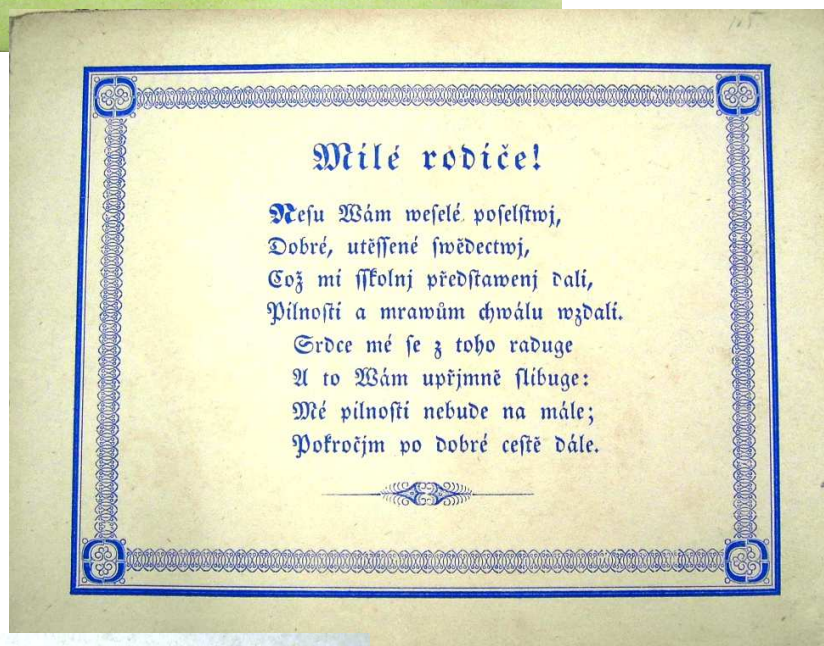 115
Milé rodiče!
Nesu Wám weselé poselstwj,
Dobré, utěssené swědectwj,
Což mi sskolnj představenj dali,
Pilnosti a mrawům chwálu wzdali.
Srdce mé se z toho raduge
A to Wám upřjmně slibuge:
Mé pilnosti nebude na mále;
Pokročjm po dobré cestě dále.